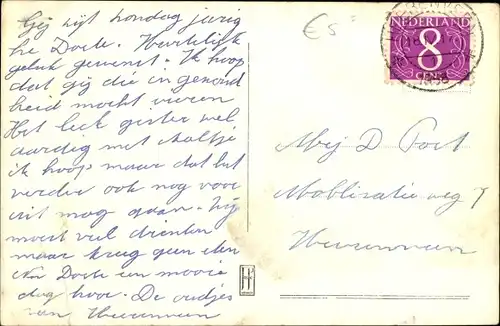 Gij zijt hondag jarig
hé Doete. Hartelijk
geluk gewenst. Ik hoop
dat gij die in gezond
heid mocht vieren
Het leek gister wel
aardig met Aaltje
ik hoop maar dat het
verder ook nog voor
uit mag gaan. Zij
moest veel drinken
maar kreeg geen eten
Nu Doete een mooie
dag hoor. De oudjes
van Heerenveen
€5
NEDERLAND
8
CENT
Mej D Post
Mobilisatie weg 7
Heerenveen